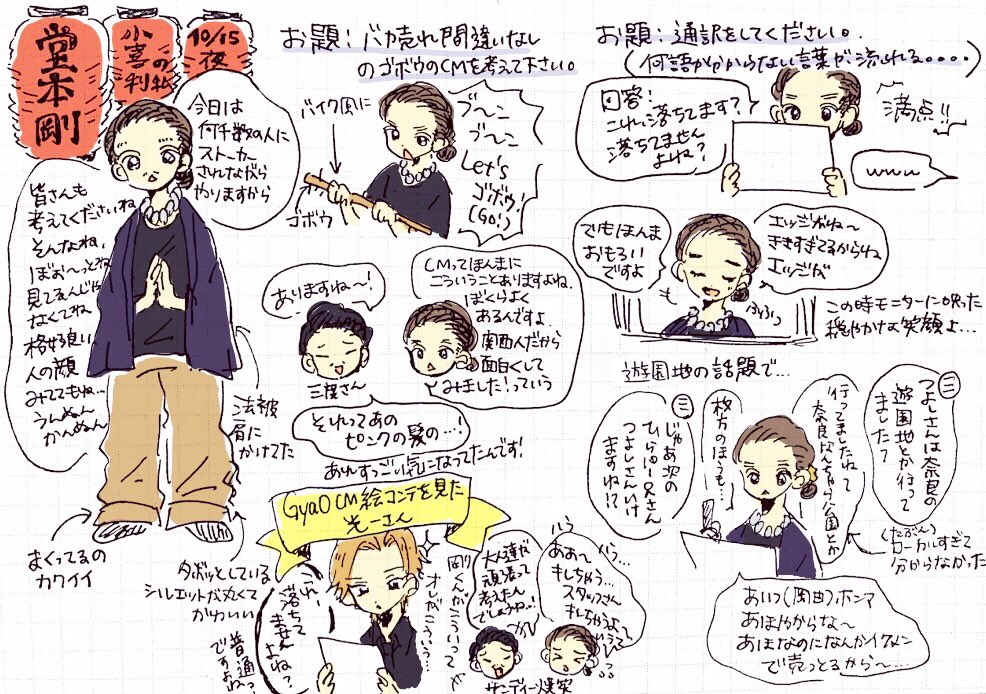 堂本剛
小喜利の私
10/15
夜
今日は
何千数の人に
ストーカー
されながら
やりますから
皆さんも
考えてくださいね
そんなね、
ぼぉ〜っとね
見てるんじゃ
なくてね
格好良い
人の顔
みててもね…
うんぬん
かんぬん
法被
肩に
かけてた
まくってるの
カワイイ
ダボッとしている
シルエットが丸くて
かわいい
お題:バカ売れ間違いなし
のゴボウのCMを考えて下さい。
バイク風に
ゴボウ
ブ〜ン
ブ〜ン
Let's
ゴボウ!
(Go!)
CMってほんまに
こういうことありますよね。
ぼくらよく
あるんですよ
関西人だから
面白くして
みました!っていう
ありますね〜!
三度さん
それってあの
ピンクの髪の…!
あれすっごい気になってたんです!
GyaO CM絵コンテを見た
光一さん
これ、
落ちて
ませんよね?
普通っ
ですよね
剛くんがこういって
オレがこういう…
大人達が
頑張って
考えたん
でしょうね…!
ああ〜
キレちゃう…
スタッフさん
キレちゃうよ
サンディー爆笑
お題:通訳をしてください。
(何語かわからない言葉が流れる・・・・)
回答!
これ、落ちてます?
落ちてません
よね?
満点!!
www
でもほんま
おもろい
ですよ
エッジがね〜
ききすぎてるからね
エッジが
ふふふっ
この時モニターに映った
穏やかな笑顔よ…
遊園地の話題で…
三
つよしさんは奈良の
遊園地とか行って
ました?
行ってましたね
奈良なんちゃら公園とか
枚方のほうも…
(たぶん)
ローカルすぎて
分からなかった
三
じゃあ次の
ひらパー兄さん
つよしさんいけ
ますね!?
あいつ(岡田)ホンマ
あほやからな〜
あほなのになんかイケメン
で売っとるから〜…